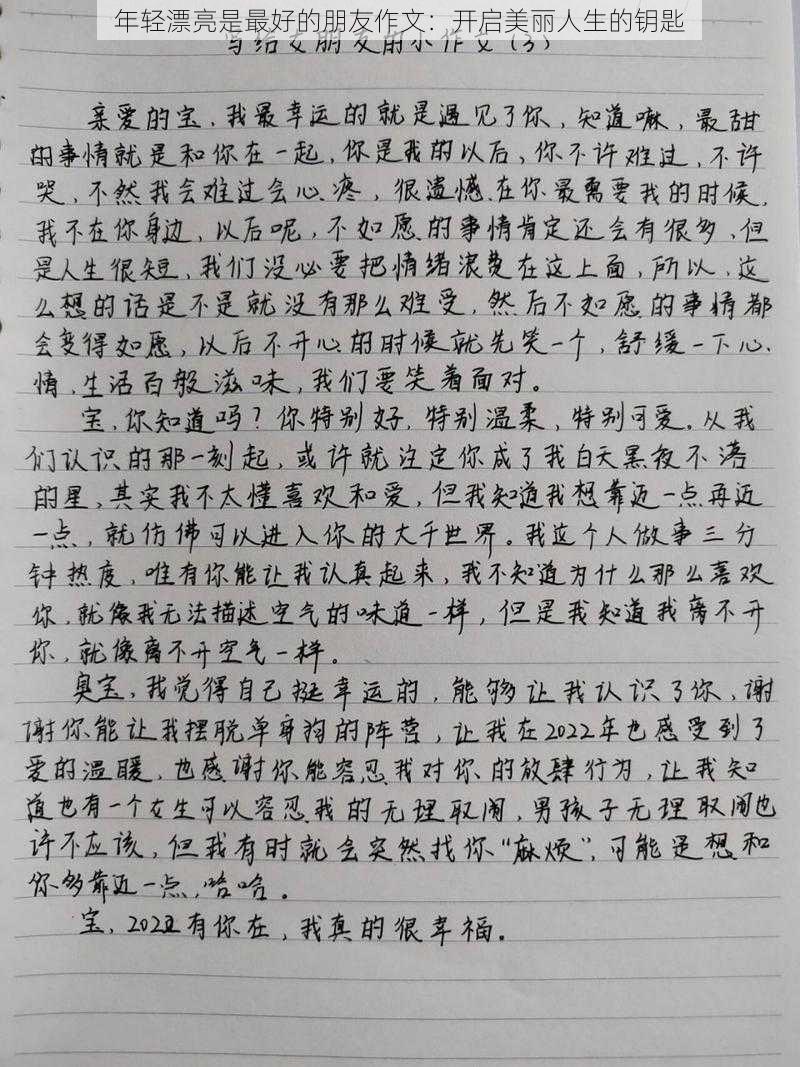 年轻漂亮是最好的朋友作文：开启美丽人生的钥匙
写给女朋友的小作文(3)
亲爱的宝，我最幸运的就是遇见了你，知道嘛，最甜
的事情就是和你在一起，你是我的以后，你不许难过，不许
哭，不然我会难过会心疼，很遗憾在你最需要我的时候，
我不在你身边，以后呢，不如愿的事情肯定还会有很多，但
是人生很短，我们没必要把情绪浪费在这上面，所以，这
么想的话是不是就没有那么难受，然后不如愿的事情都
会变得如愿，以后不开心的时候就先笑一个，舒缓一下心
情，生活百般滋味，我们要笑着面对。
宝，你知道吗？你特别好，特别温柔，特别可爱。从我
们认识的那一刻起，或许就注定你成了我白天黑夜不落
的星，其实我不太懂喜欢和爱，但我知道我想靠近一点再近
一点，就仿佛可以进入你的大千世界。我这个人做事三分
钟热度，唯有你能让我认真起来，我不知道为什么那么喜欢
你，就像我无法描述空气的味道一样，但是我知道我离不开
你，就像离不开空气一样。
臭宝，我觉得自己挺幸运的，能够让我认识了你，谢
谢你能让我摆脱单身狗的阵营，让我在2022年也感受到了
爱的温暖，也感谢你能容忍我对你的放肆行为，让我知
道也有一个女生可以容忍我的无理取闹，男孩子无理取闹也
许不应该，但我有时就会突然找你“麻烦”，可能是想和
你多靠近一点，哈哈。
宝，2022有你在，我真的很幸福。